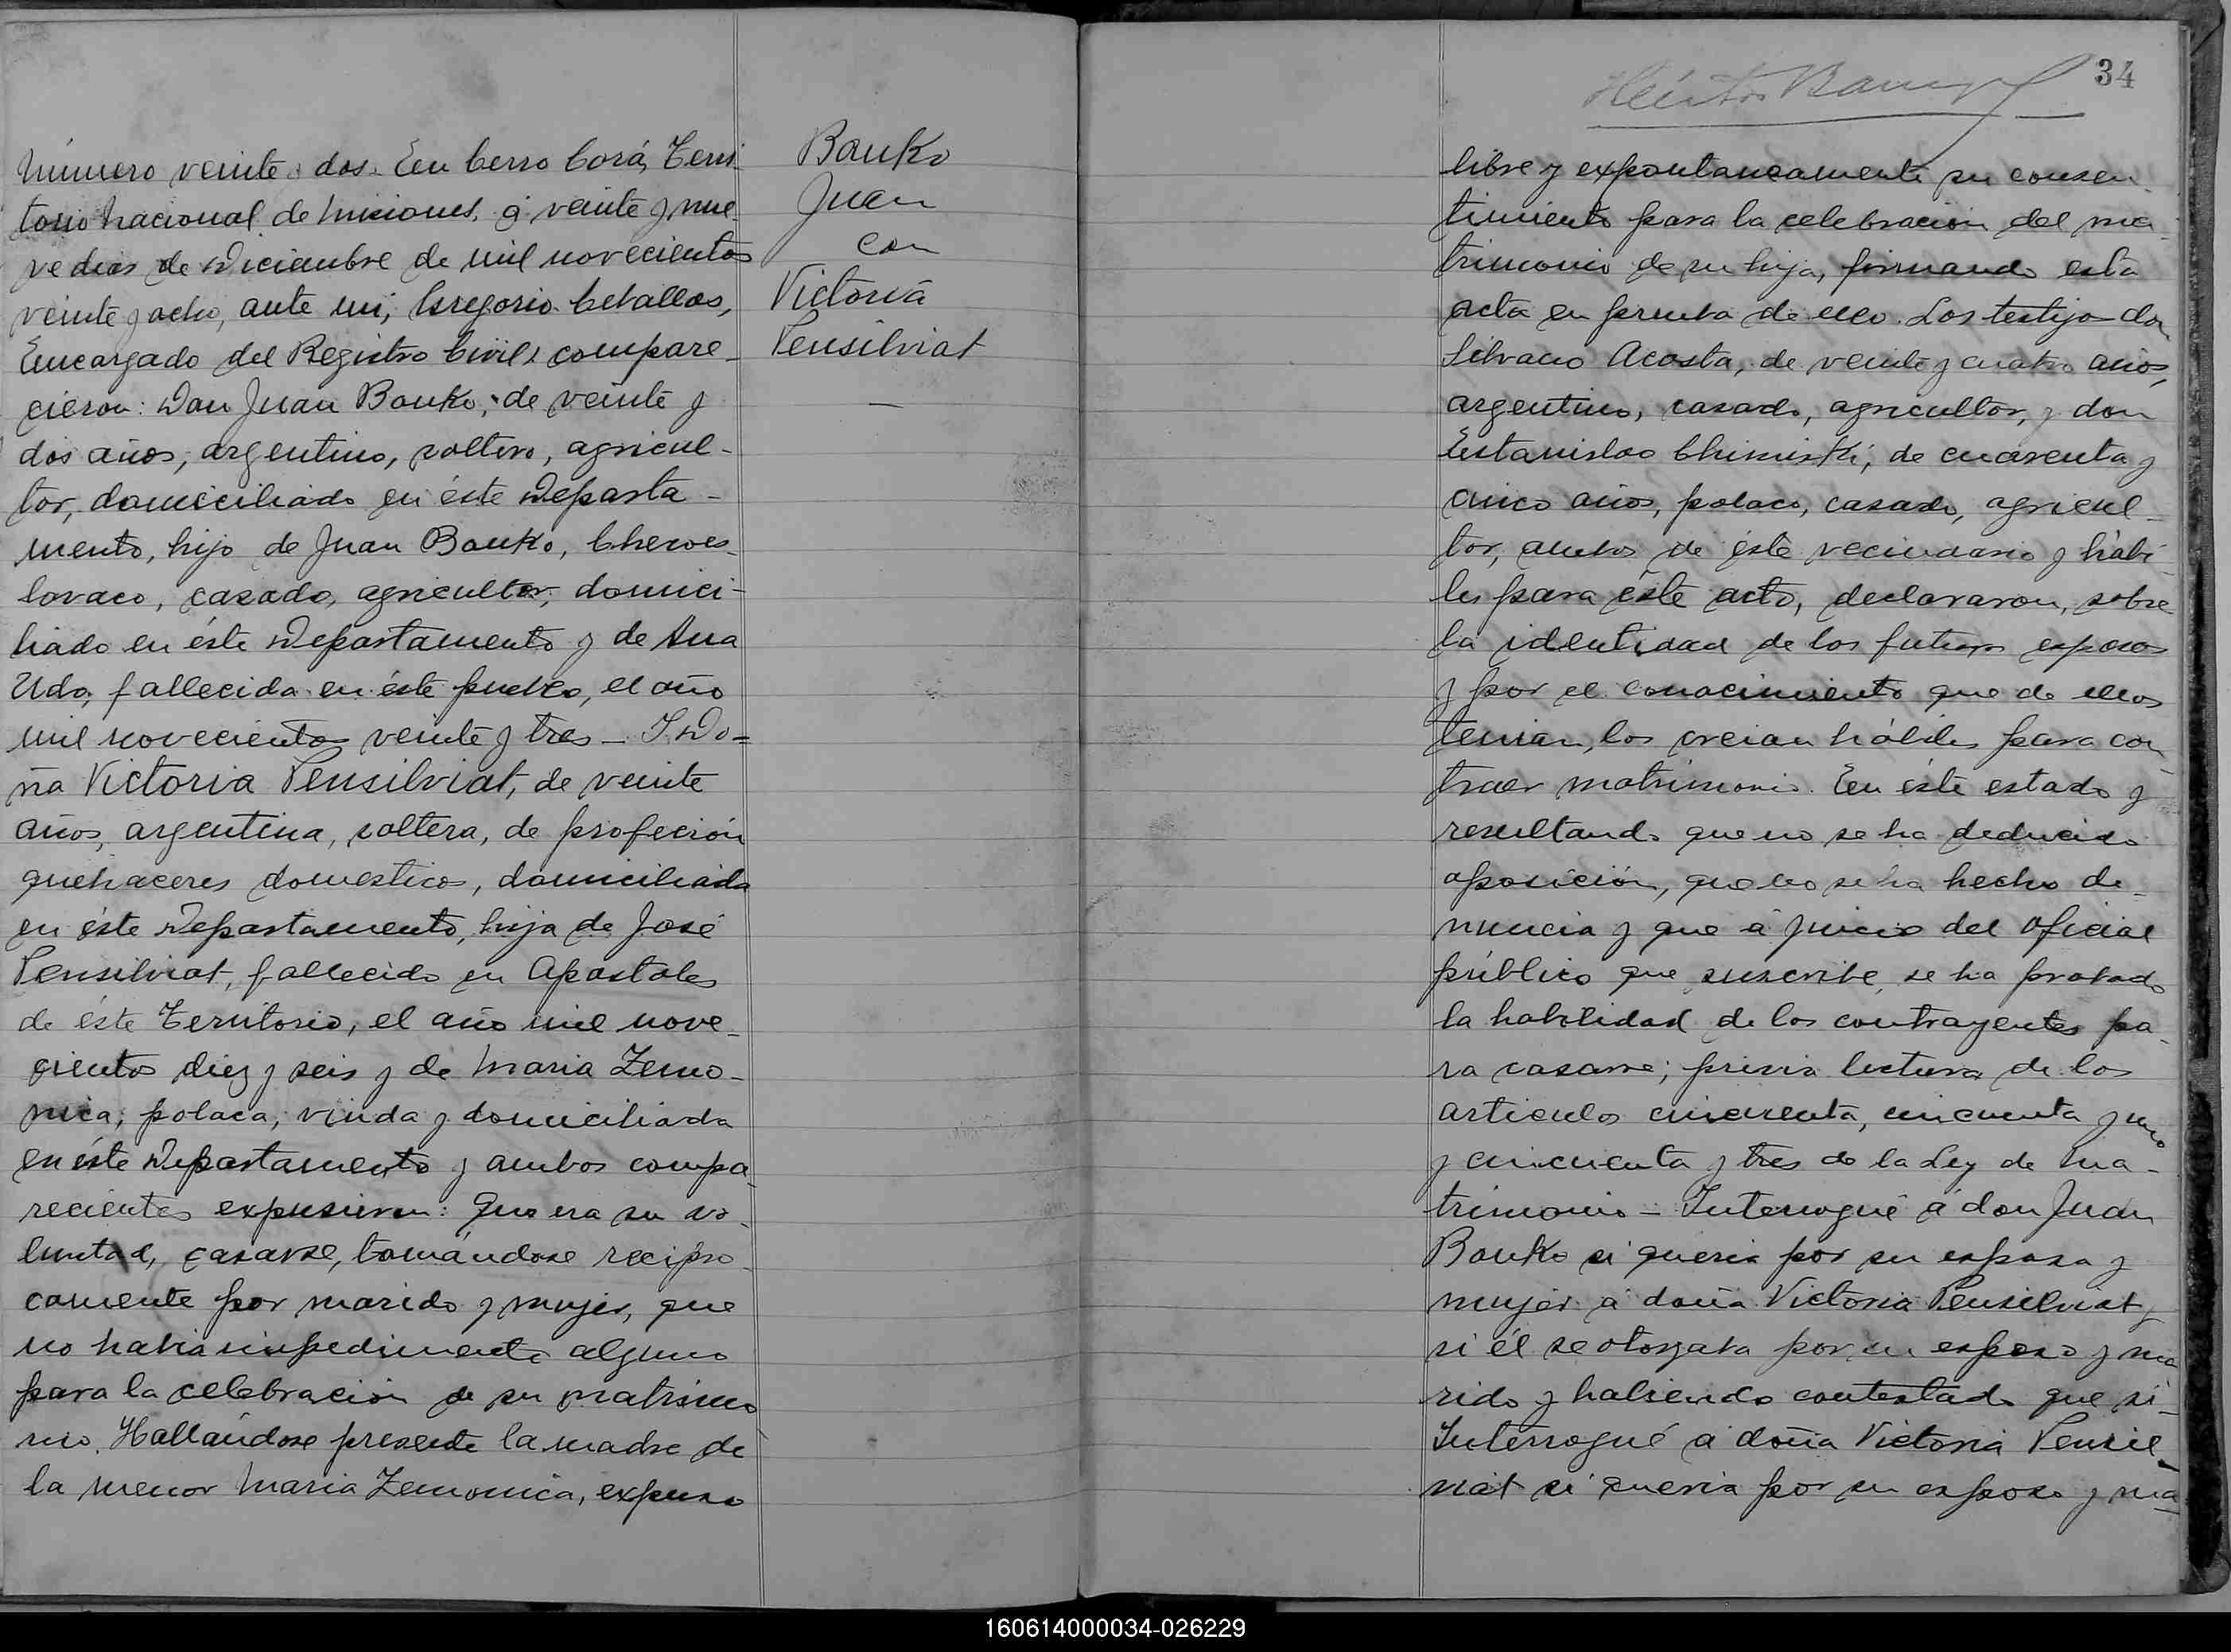 Número veinte y dos. En Cerro Corá, Terri-
torio Nacional de Misiones, á veinte y nue-
ve dias de Diciembre de mil novecientos
veinte y ocho, ante mi, Gregorio Ceballos,
Encargado del Registro Civil, compare-
cieron: Don Juan Bouko, de veinte y
dos años, argentino, soltero, agricul-
tor, domiciliado en éste Departa-
mento, hijo de Juan Bouko, Checoes-
lovaco, casado, agricultor, domici-
liado en éste Departamento y de Ana
Udo, fallecida en éste pueblo, el año
mil novecientos veinte y tres - Y Do=
ña Victoria Pensilviat, de veinte
años, argentina, soltera, de profeción
quehaceres domesticos, domiciliada
en éste Departamento, hija de José
Pensilviat, fallecido en Apostoles
de éste Territorio, el año mil nove-
cientos diez y seis y de Maria Zemo-
nica, polaca, viuda y domiciliada
en éste Departamento y ambos compa-
recientes expusieron: Que era su vo-
luntad, casarse, tomándose recipro-
camente por marido y mujer, que
no habia impedimento alguno
para la celebración de su matrimo
nio. Hallándose presente la madre de
la menor Maria Zemonica, expuso
Bouko
Juan
con
Victoria
Pensilviat
—
34
libre y expontaneamente su consen-
timiento para la celebración del ma-
trimonio de su hija, firmando esta
acta en prueba de ello. Los testigos don
Silvano Acosta, de veinte y cuatro años,
argentino, casado, agricultor, y don
Estanislao Chimiski, de cuarenta y
cinco años, polaco, casado, agricul-
tor, ambos de éste vecindario y hábi-
les para éste acto, declararon, sobre
la identidad de los futuros esposos
y por el conocimiento que de ellos
tenian, los creian hábiles para con-
traer matrimonio. En éste estado y
resultando que no se ha deducido
oposición, que no se ha hecho de-
nuncia y que á juicio del oficial
público que suscribe, se ha probado
la habilidad de los contrayentes pa-
ra casarse; previa lectura de los
articulos cincuenta, cincuenta y uno
y cincuenta y tres de la Ley de Ma-
trimonio - Interrogué á don Juan
Bouko si queria por su esposa y
mujer á doña Victoria Pensilviat y
si él se otorgaba por su esposo y ma
rido y habiendo contestado que si-
Interrogué á doña Victoria Pensil-
viat si queria por su esposo y ma-
160614000034-026229